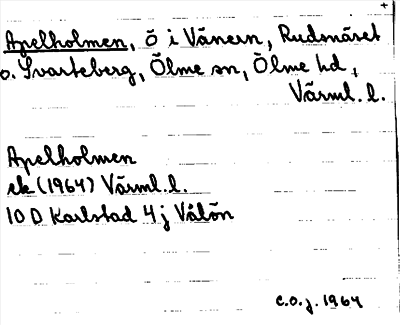 Apelholmen, ö i Vänern, Rudsnäset
o. Svarteberg, Ölme sn, Ölme hd,
Värml. l.
Apelholmen
ek (1964) Värml. l.
10 D Karlstad 4 j Vålön
C.O.J. 1964